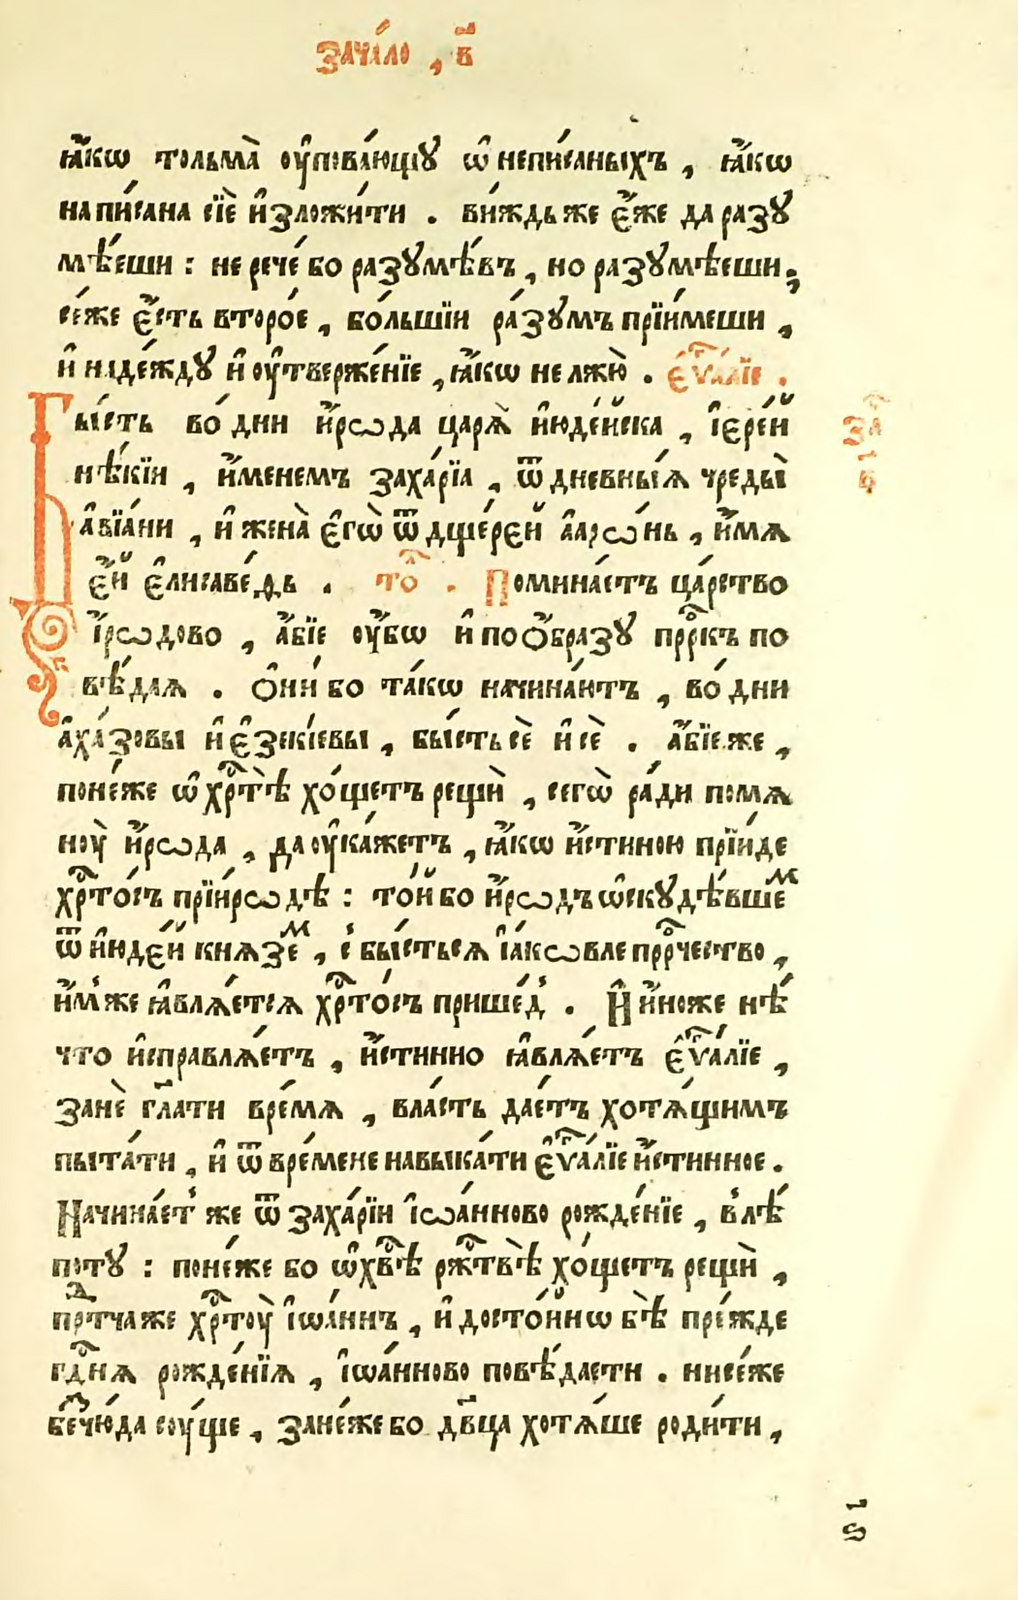 зача́ло , в҃
ꙗ҆́кѡ тольма̀ оу҆пова́ющꙋ ѡ҆ непи́саныхъ , ꙗ҆́кѡ
напи́сана сїѐ и҆зложи́ти . ви́ждь же є҆́же да разꙋ
мѣ́еши : не рече́ бо разꙋмѣ́въ , но разꙋмѣ́еши ,
се́же є҆́сть второ́е , бо́льшїи ра́зꙋмъ прїи́меши ,
и҆ наде́ждꙋ и҆ оу҆тверже́нїе , ꙗ҆́кѡ не лжю̀ . є҆ѵⷢ҇а́лїе .
Бы́сть во́ дни и҆́рѡда царѧ̀ и҆юде́йска , і҆єре́й
за҄
нѣ́кїи , и҆́менемъ заха́рїа , ѿ дневны́ѧ чреды̀
в҃
а҆вїа́ни , и҆ жена̀ є҆гѡ̀ ѿ дще́рєй а҆арѡ́нь , и҆́мѧ
є҆́й є҆лисаве́ѳь . то҄ . Помина́етъ ца́рство
и҆́рѡдово , а҆́бїе оу҆́бѡ и҆ по ѻ҆́бразꙋ прⷪ҇ркъ по
вѣ́даѧ . ѻ҆ни́ бо та́кѡ начина́ютъ , во́ дни
а҆ха́зовы и҆ є҆зекі́евы , бы́сть сѐ и҆ сѐ . а҆́бїе же ,
поне́же ѡ҆ хрⷭ҇тѣ̀ хо́щетъ рещѝ , сегѡ̀ ра́ди помѧ
ноу̀ и҆́рѡда , да оу҆ка́жетъ , ꙗ҆́кѡ и҆́стиною прїи́де
хрⷭ҇то́съ при и҆́рѡдѣ : то́й бо и҆́рѡдъ ѡ҆скꙋдѣ́вшеⷨ
ѿ и҆юде́й кнѧ́зеⷨ , є҆ бы́стьсѧ і҆а́кѡвле прⷪ҇ро́чество ,
и҆́мже ꙗ҆влѧ́етсѧ хрⷭ҇то́съ прише́д̾ . И҆ и҆́ноже нѣ́
что и҆справлѧ́етъ , и҆́стинно ꙗ҆влѧ́етъ є҆ѵⷢ҇а́лїе ,
занѐ гл҃ати вре́мѧ , вла́сть дае́тъ хотѧ́щимъ
пыта́ти , и҆ ѿ вре́мене навыка́ти є҆ѵⷢ҇а́лїе и҆́стинное .
Начина́ет̾ же ѿ заха́рїи і҆ѡа́нново рожде́нїе , в̾ лѣ́
потꙋ : поне́же бо ѡ҆ хв҃ѣ ржⷭ҇твѣ̀ хо́щетъ рещѝ ,
прⷣтча же хрⷭ҇тоу̀ і҆ѡа́ннъ , и҆ досто́йнѡ бѣ̀ пре́жде
гдⷭ҇нѧ рожде́нїѧ , і҆ѡа́нново повѣ́дасти . ни се́же
беⷥ чю́да соу́щіе , зане́же бо дв҃ца хотѧ́ше роди́ти ,
ѕ҃